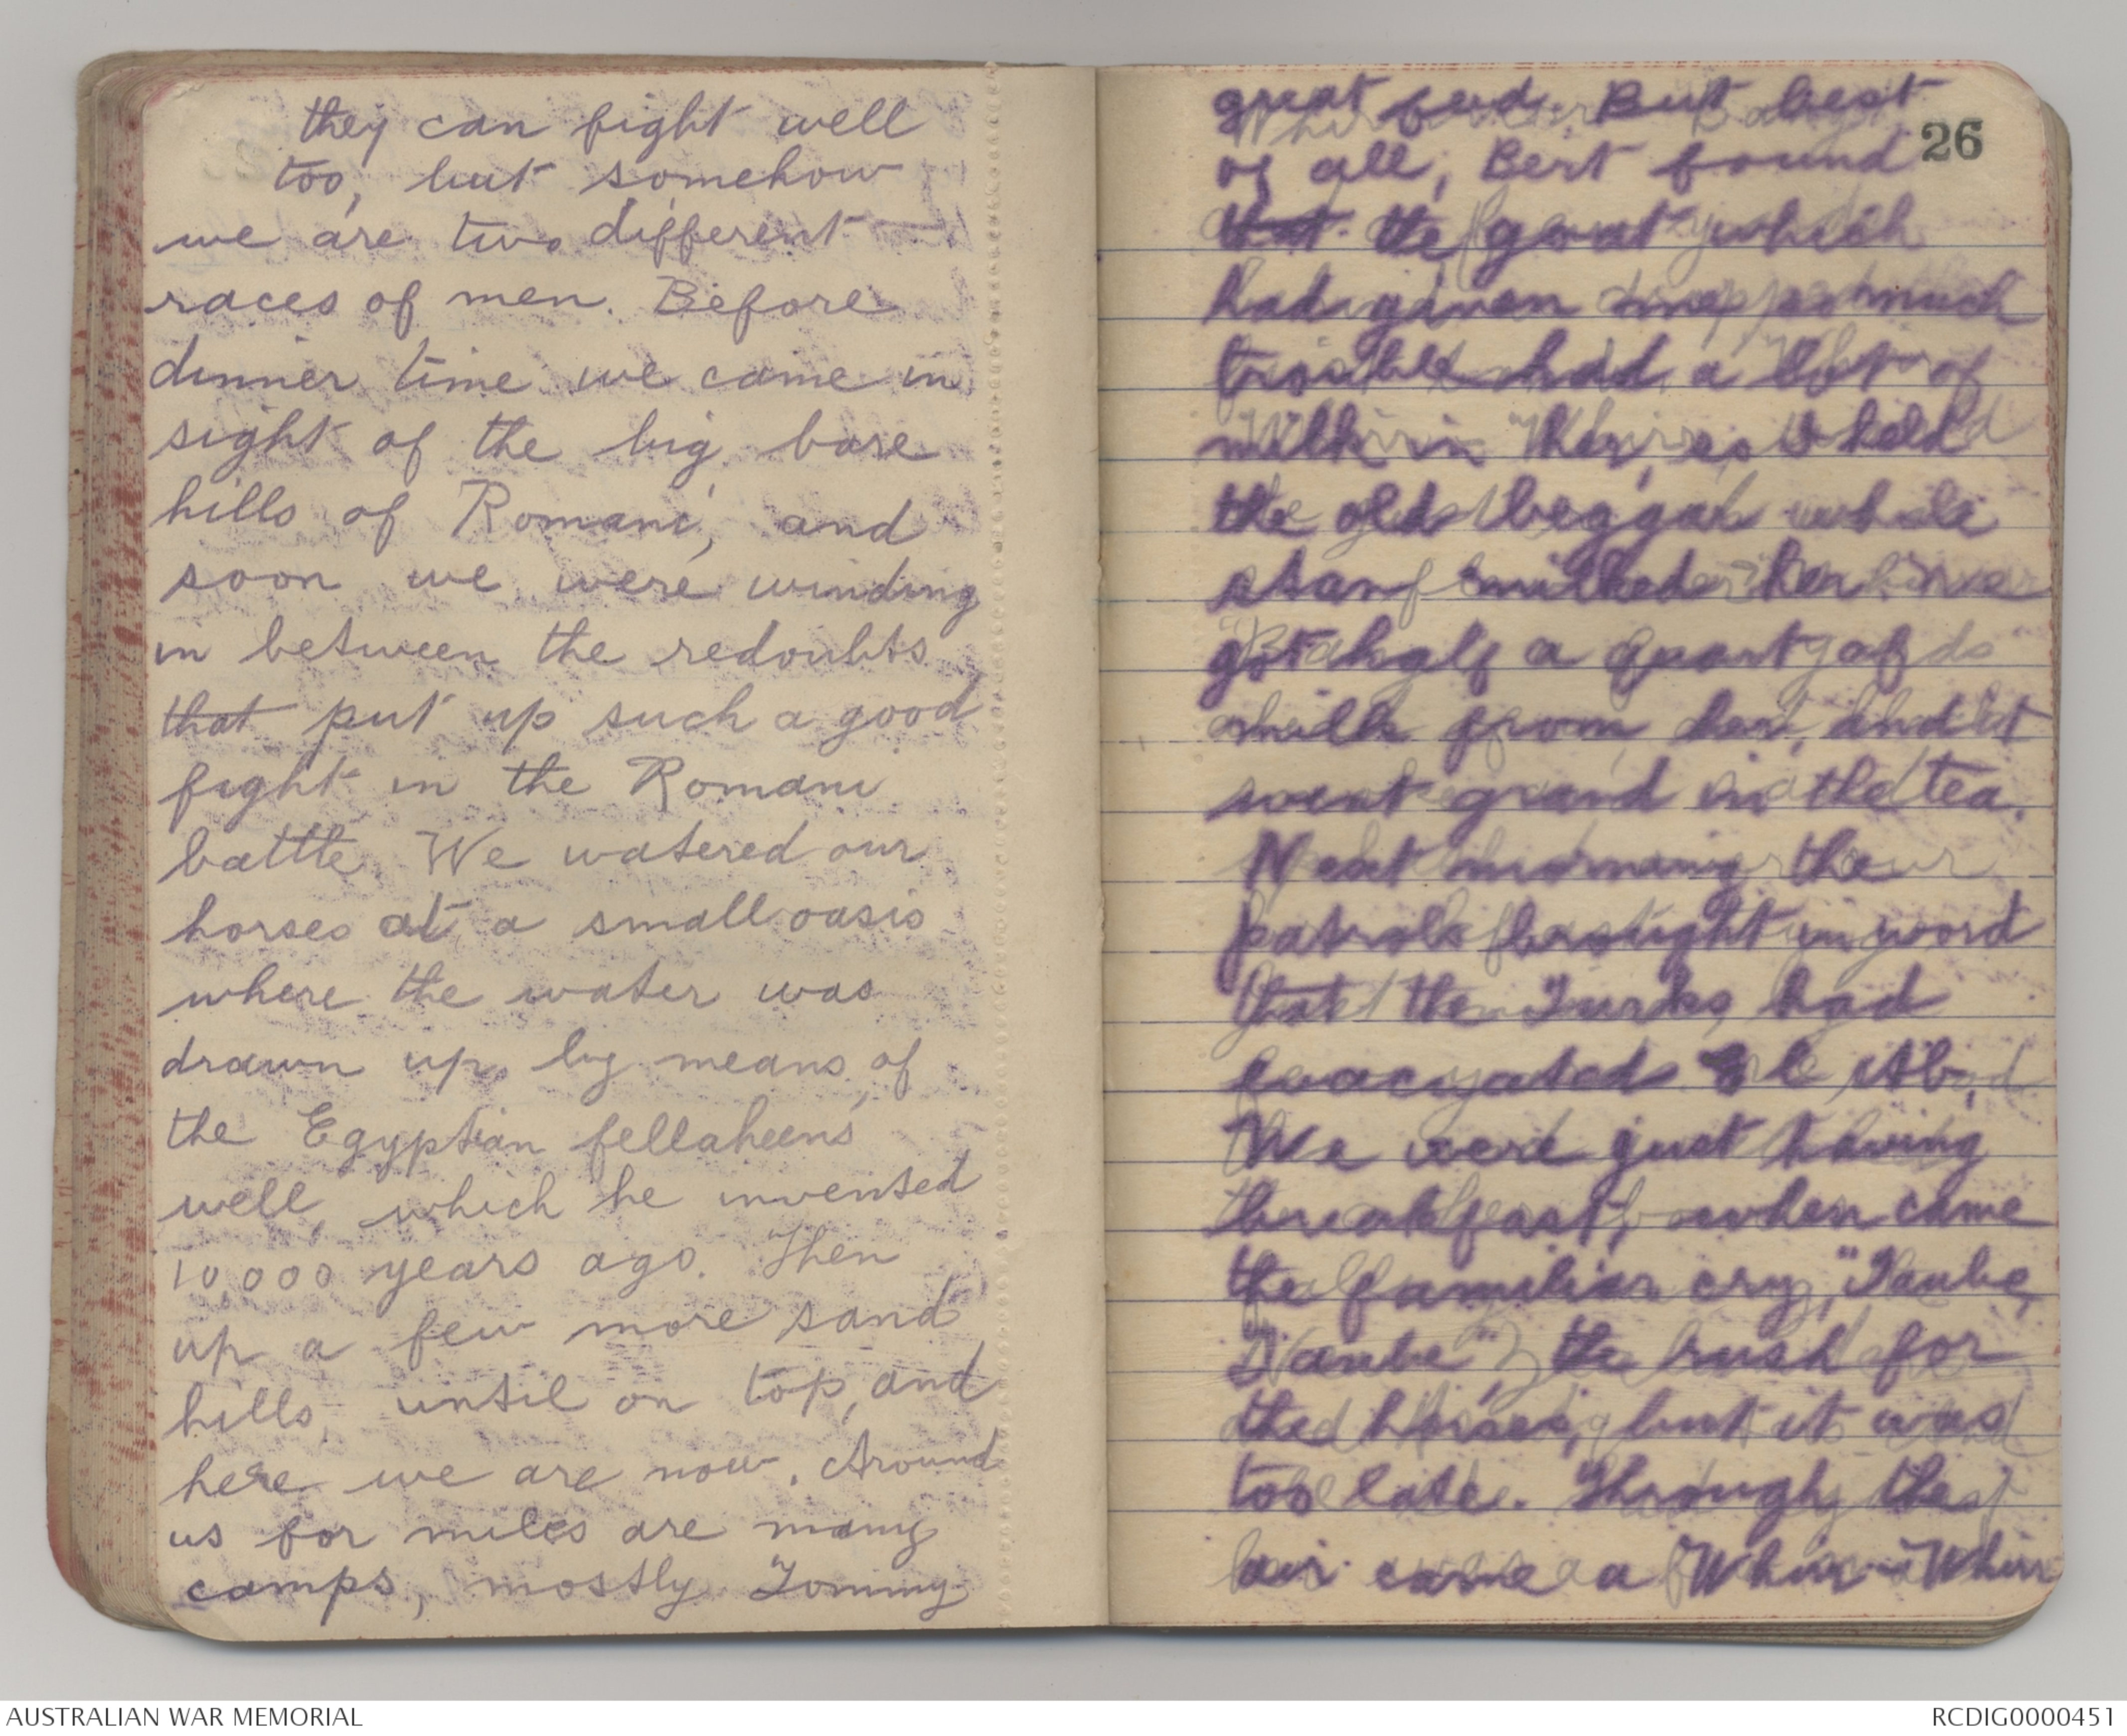 they can fight well
too, but somehow
we are two different
races of men. Before
dinner time we came in
sight of the big bare
hills of Romani, and
soon we were winding
in between the redoubts
that put up such a good
fight in the Romani
battle. We watered our
horses at a small oasis
where the water was
drawn up by means of
the Egyptian fellaheens
well, which he invented
10,000 years ago. Then
up a few more sand
hills, until on top, and
here we are now. Around
us for miles are many
camps, mostly Tommy
26
great feed. But best
of all, Bert found
that the goat which
had given me so much
trouble had a lot of
milk in her, so I held
the old beggar while
Stan milked her. We
got half a quart of
milk from her, and it
went grand in the tea.
Next morning the
patrols brought in word
that the Turks had
evacuated El Abd,
We were just having
breakfast, when came
the familiar cry, "Taube,
Taube", the rush for
the horses, but it was
too late. Through the
air came a Whirr-Whirr
AUSTRALIAN WAR MEMORIAL
RCDIG0000451